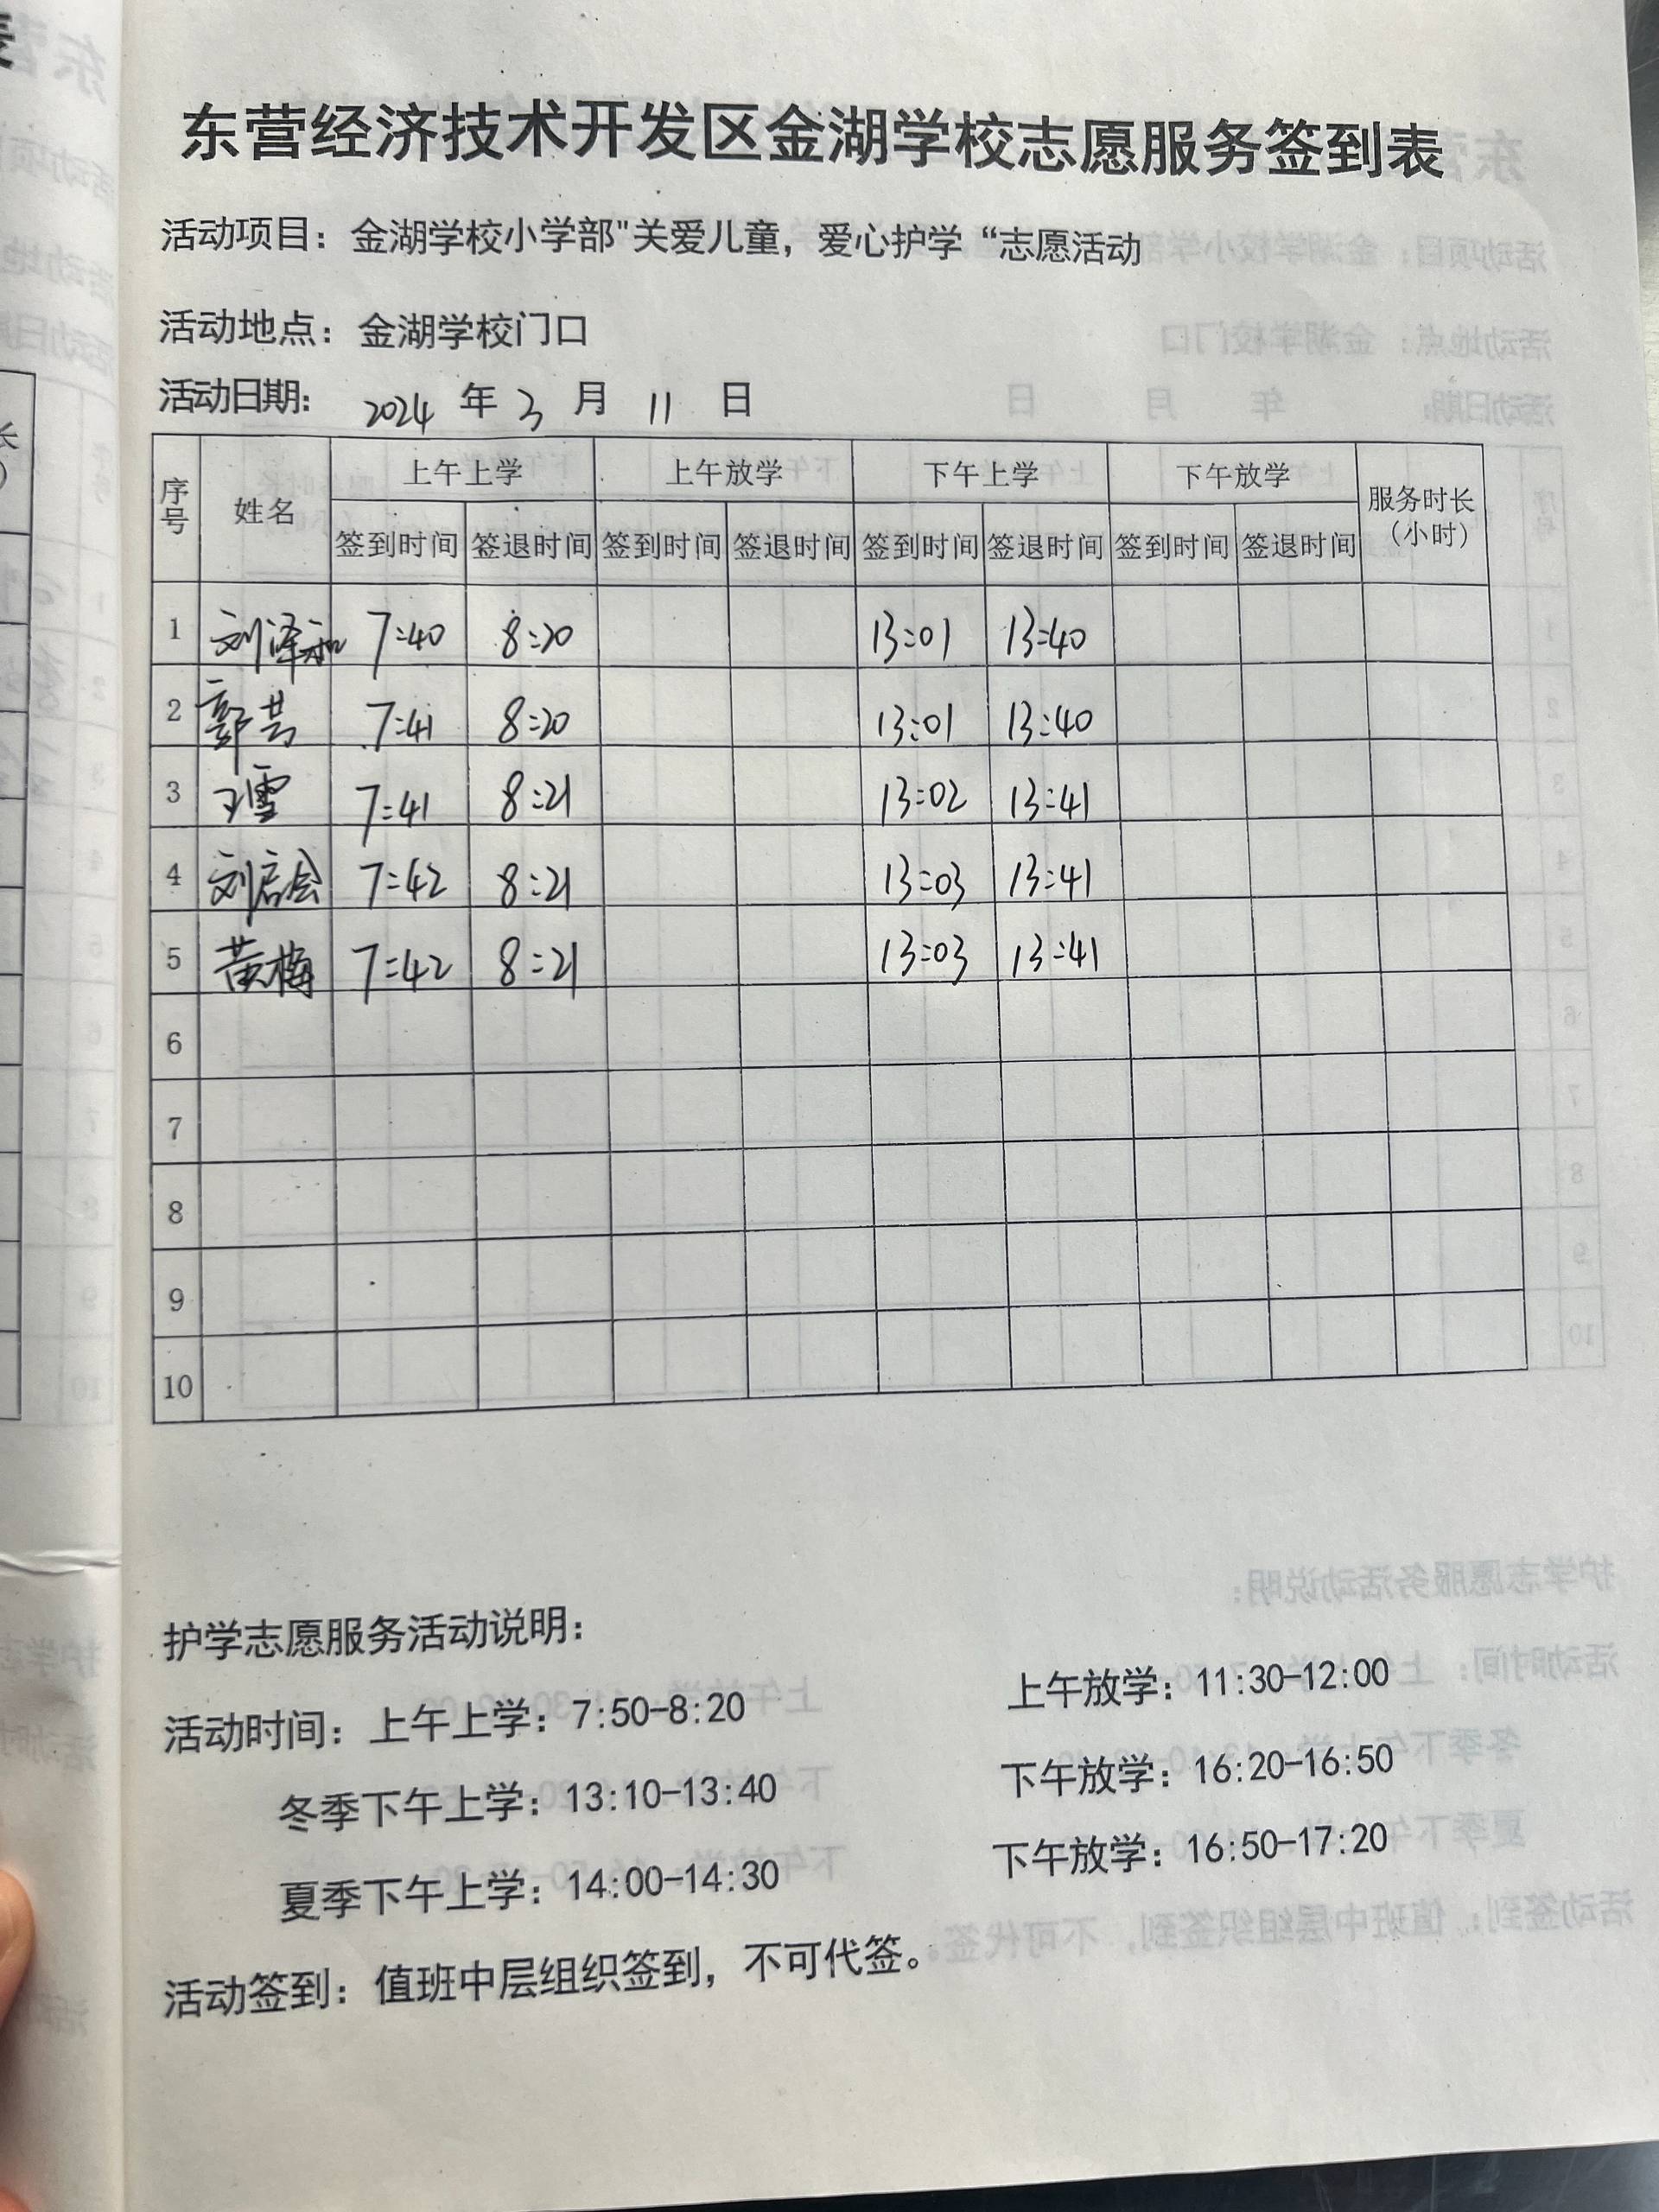 东营经济技术开发区金湖学校志愿服务签到表
活动项目：金湖学校小学部"关爱儿童，爱心护学“志愿活动
活动地点：金湖学校门口
活动日期： 2024 年 3 月 11 日
序号 姓名 上午上学 上午放学 下午上学 下午放学 服务时长（小时）
签到时间 签退时间 签到时间 签退时间 签到时间 签退时间 签到时间 签退时间
1 刘泽和 7:40 8:20 13:01 13:40
2 郭芸 7:41 8:20 13:01 13:40
3 王雪 7:41 8:21 13:02 13:41
4 刘启会 7:42 8:21 13:03 13:41
5 黄梅 7:42 8:21 13:03 13:41
6
7
8
9
10
护学志愿服务活动说明：
活动时间：上午上学：7:50-8:20 上午放学：11:30-12:00
冬季下午上学：13:10-13:40 下午放学：16:20-16:50
夏季下午上学：14:00-14:30 下午放学：16:50-17:20
活动签到：值班中层组织签到，不可代签。